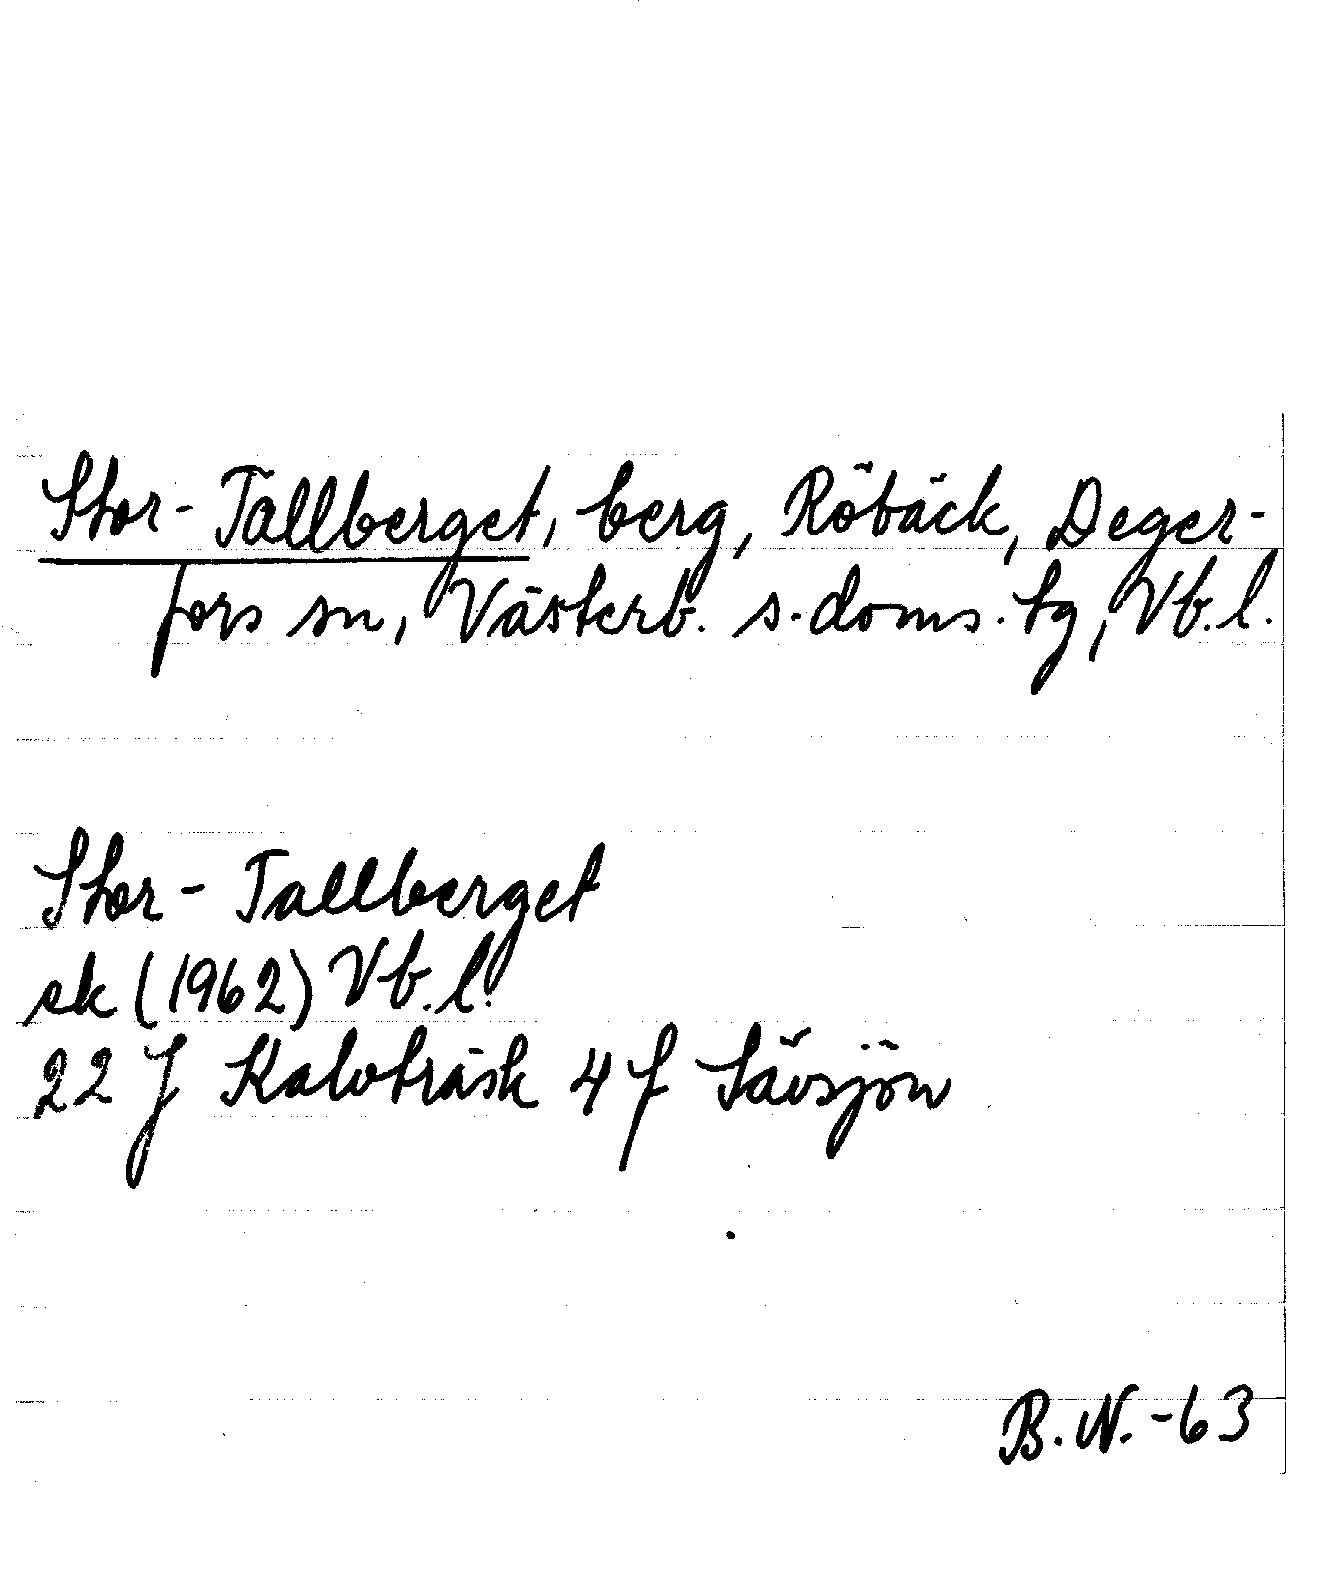 Stor-Tallberget, berg, Röbäck, Deger-
fors sn, Västerb. s. doms. tg, Vb. l.
Stor-Tallberget
ek (1962) Vb. l.
22 J Kalvträsk 4 f Sävsjön
B.N. -63